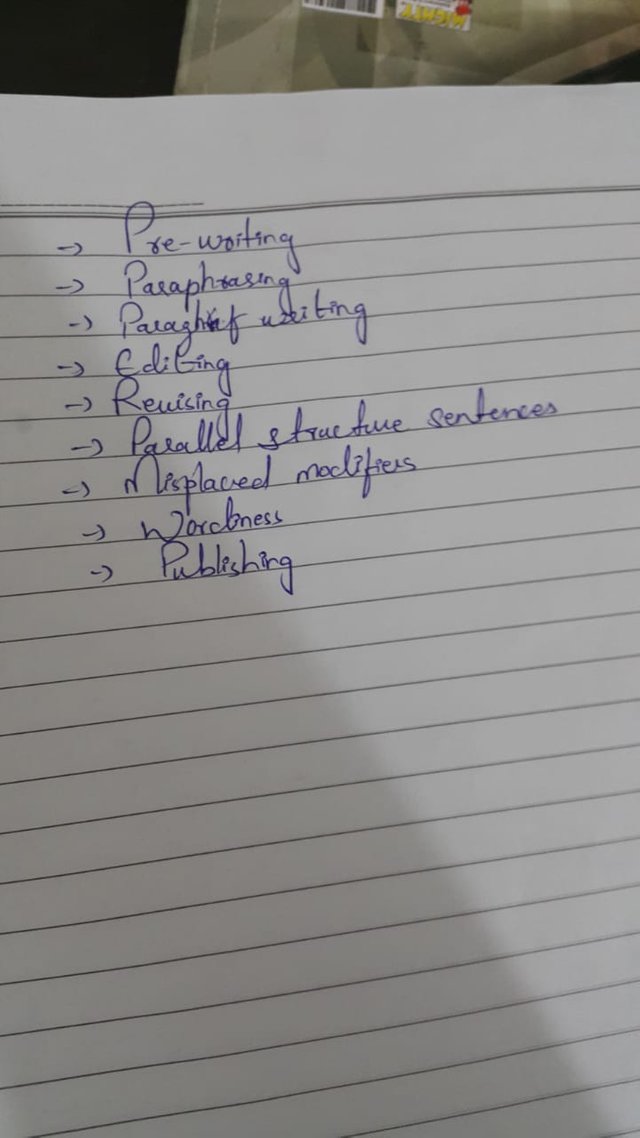 → Pre-writing
→ Paraphrasing
→ writing
→ Editing
→ Revising
→ Parallel structure sentences
→ Misplaced modifiers
→
→ Publishing